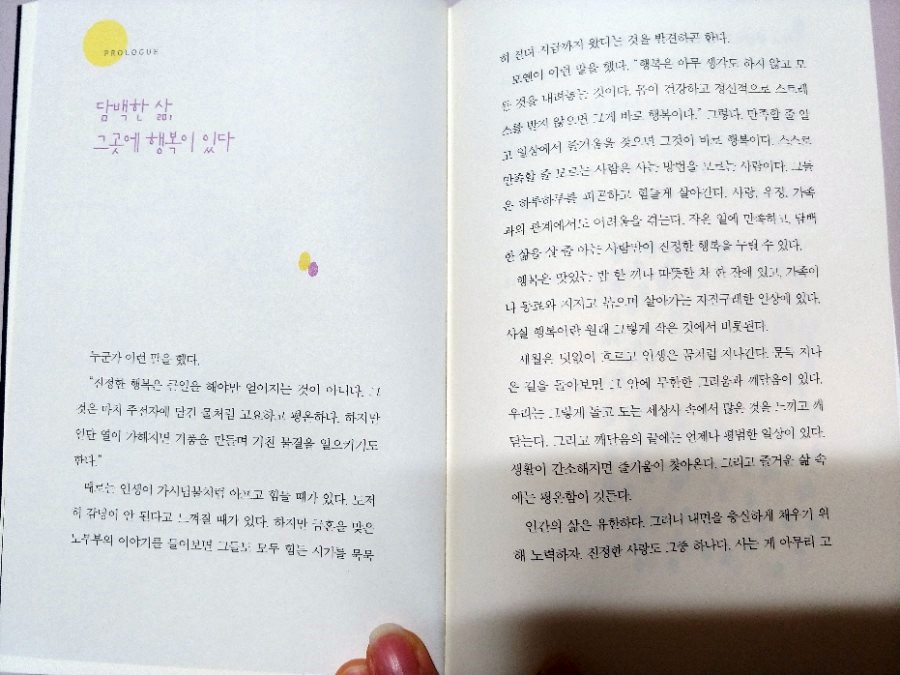 PROLOGUE
담백한 삶,
그곳에 행복이 있다
누군가 이런 말을 했다.
"진정한 행복은 큰일을 해야만 얻어지는 것이 아니다. 그
것은 마치 주전자에 담긴 물처럼 고요하고 평온하다. 하지만
일단 열이 가해지면 기품을 만들며 거친 물결을 일으키기도
한다."
때로는 인생이 가시덤불처럼 아프고 힘들 때가 있다. 도저
히 감당이 안 된다고 느껴질 때가 있다. 하지만 금혼을 맞은
노부부의 이야기를 들어보면 그들도 모두 힘든 시기를 묵묵
히 견뎌 지금까지 왔다는 것을 발견하곤 한다.
모옌이 이런 말을 했다. "행복은 아무 생각도 하지 않고 모
든 것을 내려놓는 것이다. 몸이 건강하고 정신적으로 스트레
스를 받지 않으면 그게 바로 행복이다." 그렇다. 만족할 줄 알
고 일상에서 즐거움을 찾으면 그것이 바로 행복이다. 스스로
만족할 줄 모르는 사람은 사는 방법을 모르는 사람이다. 그들
은 하루하루를 피곤하고 힘들게 살아간다. 사랑, 우정, 가족
과의 관계에서도 어려움을 겪는다. 작은 일에 만족하고, 담백
한 삶을 살 줄 아는 사람만이 진정한 행복을 누릴 수 있다.
행복은 맛있는 밥 한 끼나 따뜻한 차 한 잔에 있고, 가족이
나 동료와 지지고 볶으며 살아가는 자질구레한 일상에 있다.
사실 행복이란 원래 그렇게 작은 것에서 비롯된다.
세월은 덧없이 흐르고 인생은 꿈처럼 지나간다. 문득 지나
온 길을 돌아보면 그 안에 무한한 그리움과 깨달음이 있다.
우리는 그렇게 돌고 도는 세상사 속에서 많은 것을 느끼고 깨
닫는다. 그리고 깨달음의 끝에는 언제나 평범한 일상이 있다.
생활이 간소해지면 즐거움이 찾아온다. 그리고 즐거운 삶 속
에는 평온함이 깃든다.
인간의 삶은 유한하다. 그러니 내면을 충실하게 채우기 위
해 노력하자. 진정한 사랑도 그중 하나다. 사는 게 아무리 고